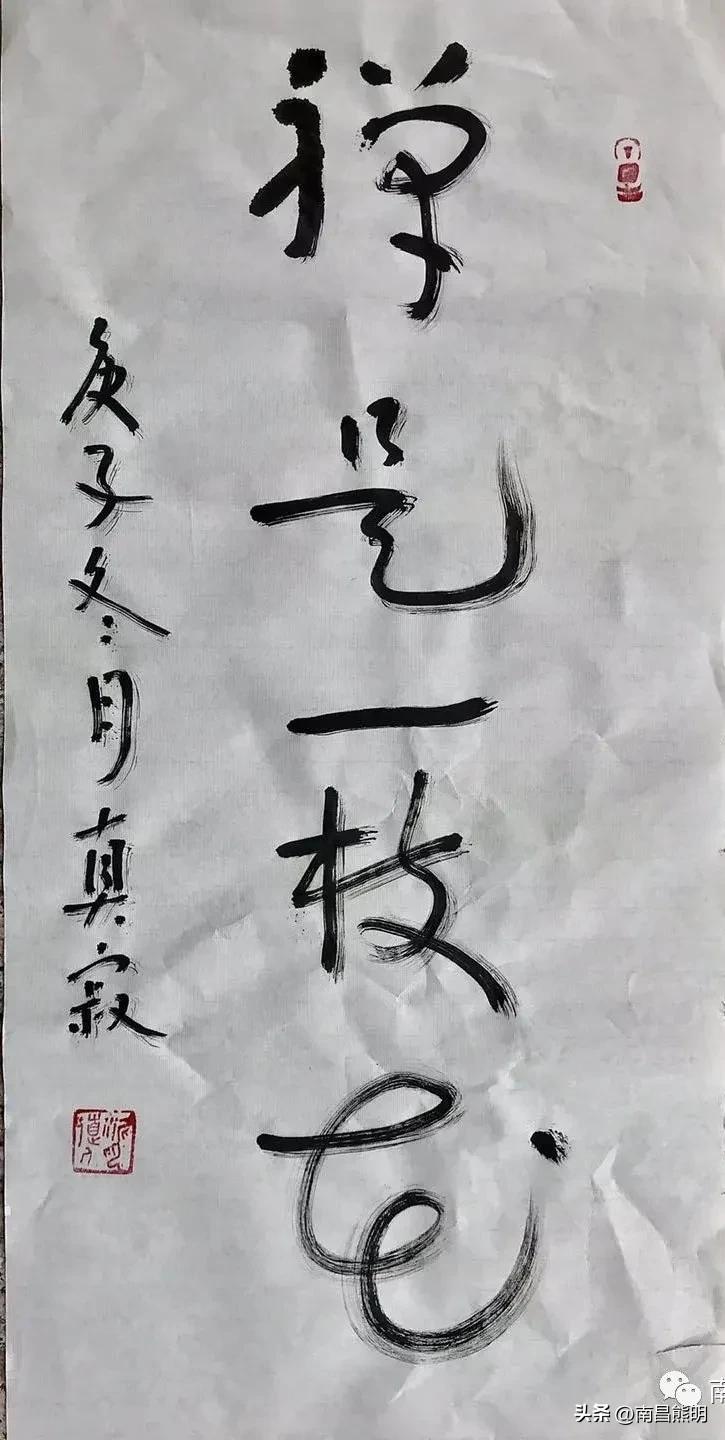 禅是一枝花
庚子冬月真寂
南
头条 @南昌熊明